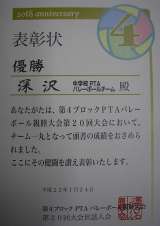 20th anniversary
4
表彰状
優勝
深沢 中学校PTA バレーボールチーム 殿
あなたがたは、第4ブロックPTAバレー
ボール親睦大会第20回大会において、
チーム一丸となって頭書の成績をおさめら
れました。
ここにその健闘を讃え表彰いたします。
平成22年1月24日
第4ブロックPTAバレーボール
第20回大会実行委員会